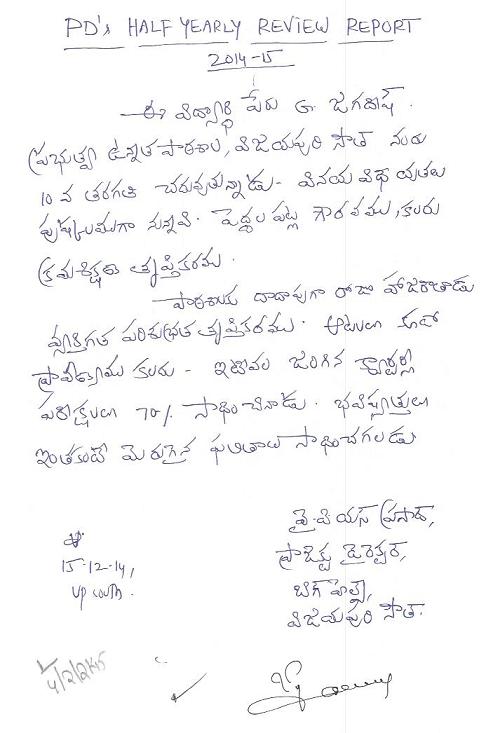 PD's HALF YEARLY REVIEW REPORT
2014-15
ఈ విద్యార్థి పేరు G. జగదీష్.
ప్రభుత్వ ఉన్నత పాఠశాల, విజయపురి సౌత్ నందు
10 వ తరగతి చదువుతున్నాడు- వినయ విధేయతలు
పుష్కలముగా నున్నవి. పెద్దల పట్ల గౌరవము, కలదు
క్రమశిక్షణ తృప్తికరము.
పాఠశాలకు దాదాపుగా రోజూ హాజరౌతాడు
వ్యక్తిగత పరిశుభ్రత తృప్తికరము. ఆటలలో కూడా
ప్రావీణ్యము కలదు - ఇటీవల జరిగిన క్వార్టర్లీ
పరీక్షలలో 70% సాధించినాడు. భవిష్యత్తులో
ఇంతకంటే మెరుగైన ఫలితాలు సాధించగలడు
వై. పి యస్ ప్రసాద్,
ప్రాజెక్టు డైరెక్టర్,
బిగ్ హెల్ప్,
విజయపురి సౌత్.
15-12-14,
VP South.